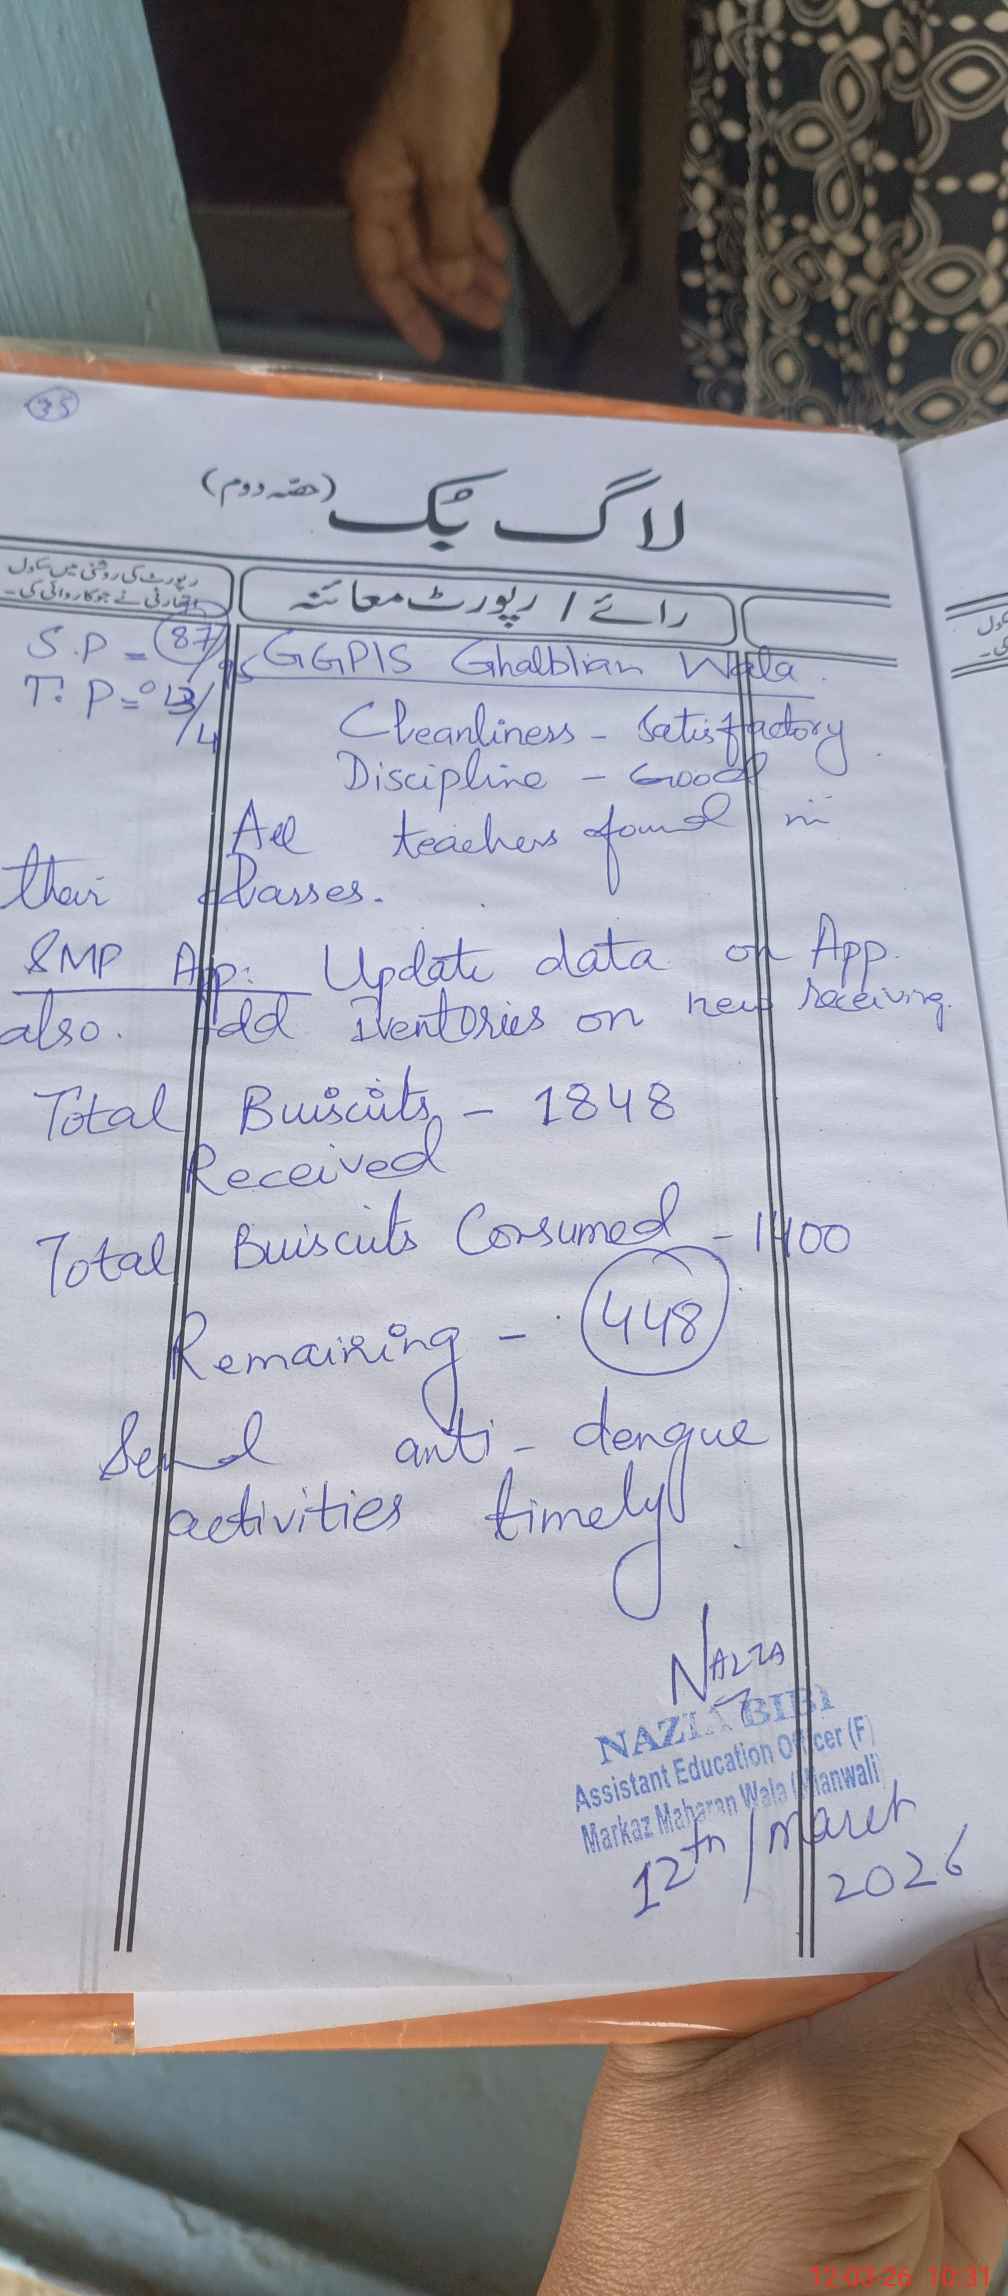 35
لاگ بُک (حصّہ دوم)
رپورٹ کی روشنی میں سکول
اتھارٹی نے جو کاروائی کی۔
رائے / رپورٹ معائنہ
S.P = 87/95
T.P = 03/4
GGPIS Ghalblian Wala.
Cleanliness - Satisfactory
Discipline - Good
All teachers found in
their classes.
SMP App: Update data on App.
also. Add Iventories on new receiving.
Total Buiscuits - 1848
Received
Total Buiscuits Consumed - 1400
Remaining - 448
Send anti-dengue
activities timely
NAZIA
NAZIA BIBI
Assistant Education Officer (F)
Markaz Maharan Wala (Mianwali)
12th / March
2026
12-03-26 10:31